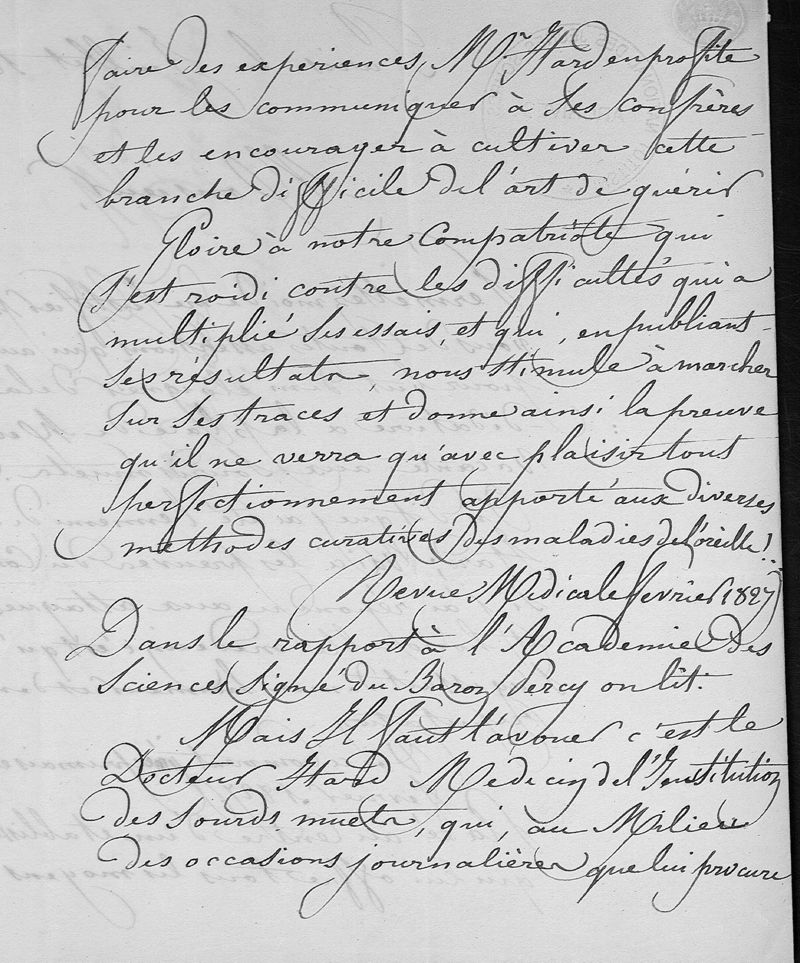 faire des experiences, Mr Itard en profite
pour les communiquer à ses confrères
et les encourager à cultiver cette
branche difficile de l'art de guérir
Gloire à notre Compatriote qui
s'est roidi contre les difficultés qui a
multiplié ses essais, et qui, en publiant
ses résultats, nous stimule à marcher
sur ses traces et donne ainsi la preuve
qu'il ne verra qu'avec plaisir tout
perfectionnement apporté aux diverses
méthodes curatives des maladies de l'oreille!.
Revue Médicale fevrier 1827
Dans le rapport à l'Academie des
Sciences signé du Baron Percy on lit:
Mais Il faut l'avouer c'est le
Docteur Itard Medecin de l'Institution
des sourds muets, qui, au Milieu
des occasions journalières que lui procure